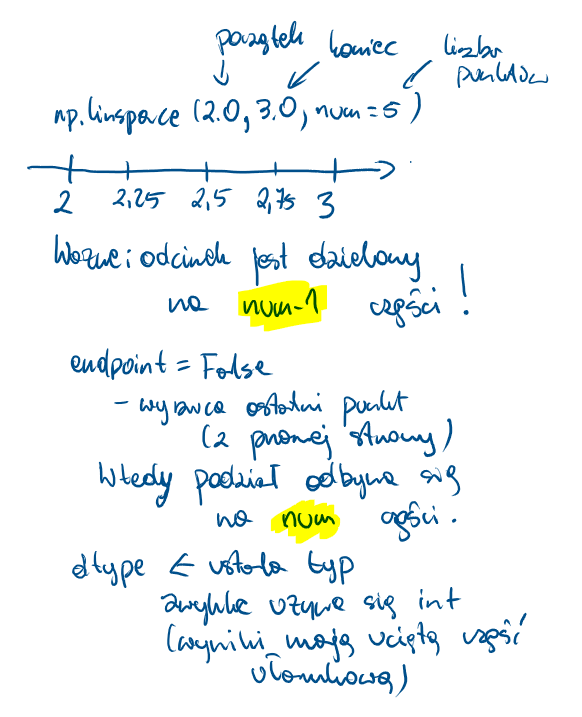 początek koniec liczba punktów
np.linspace (2.0, 3.0, num = 5)
2 2,25 2,5 2,75 3
Ważne: odcinek jest dzielony
na num-1 części!
endpoint = False
- wyrzuca ostatni punkt
(z prawej strony)
Wtedy podział odbywa się
na num części.
dtype ← ustala typ
zwykle używa się int
(wyniki mają uciętą część
ułamkową)